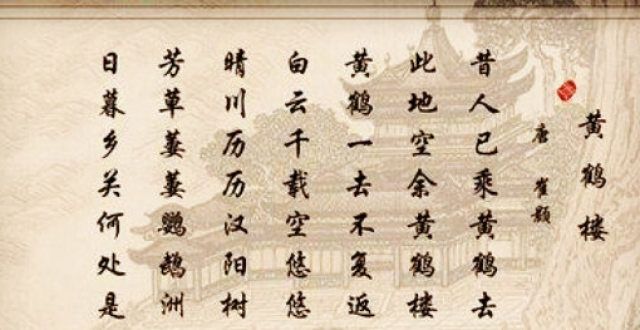 黄鹤楼
唐 崔颢
昔人已乘黄鹤去
此地空余黄鹤楼
黄鹤一去不复返
白云千载空悠悠
晴川历历汉阳树
芳草萋萋鹦鹉洲
日暮乡关何处是